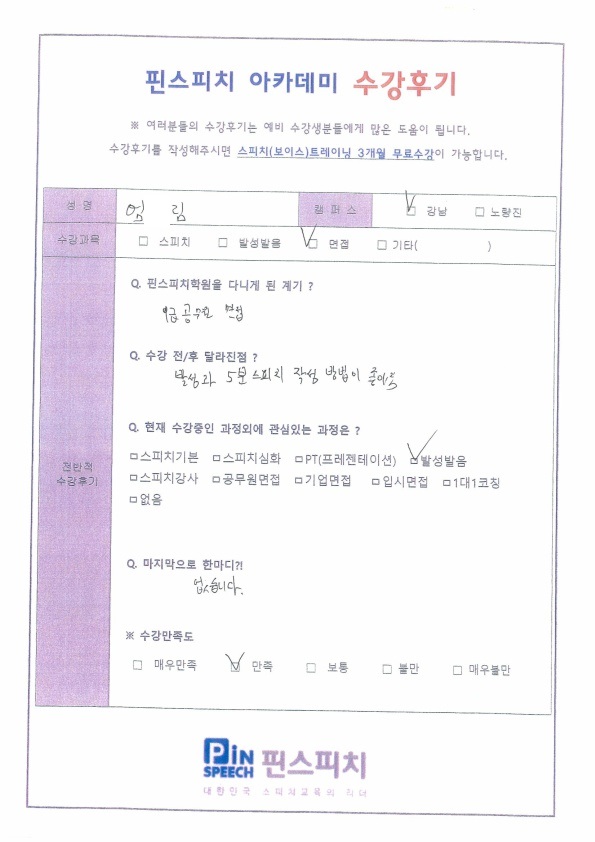 핀스피치 아카데미 수강후기
※ 여러분들의 수강후기는 예비 수강생분들에게 많은 도움이 됩니다.
수강후기를 작성해주시면 스피치(보이스)트레이닝 3개월 무료수강이 가능합니다.
성 명 엄 림 캠 퍼 스 ☑ 강남 □ 노량진
수강과목 □ 스피치 □ 발성발음 ☑ 면접 □ 기타( )
전반적
수강후기
Q. 핀스피치학원을 다니게 된 계기 ?
9급 공무원 면접
Q. 수강 전/후 달라진점 ?
발성과 5분스피치 작성 방법이
Q. 현재 수강중인 과정외에 관심있는 과정은 ?
□스피치기본 □스피치심화 □PT(프레젠테이션) ☑발성발음
□스피치강사 □공무원면접 □기업면접 □입시면접 □1대1코칭
□없음
Q. 마지막으로 한마디?!
없습니다.
※ 수강만족도
□ 매우만족 ☑ 만족 □ 보통 □ 불만 □ 매우불만
PiN SPEECH 핀스피치
대한민국 스피치교육의 리더